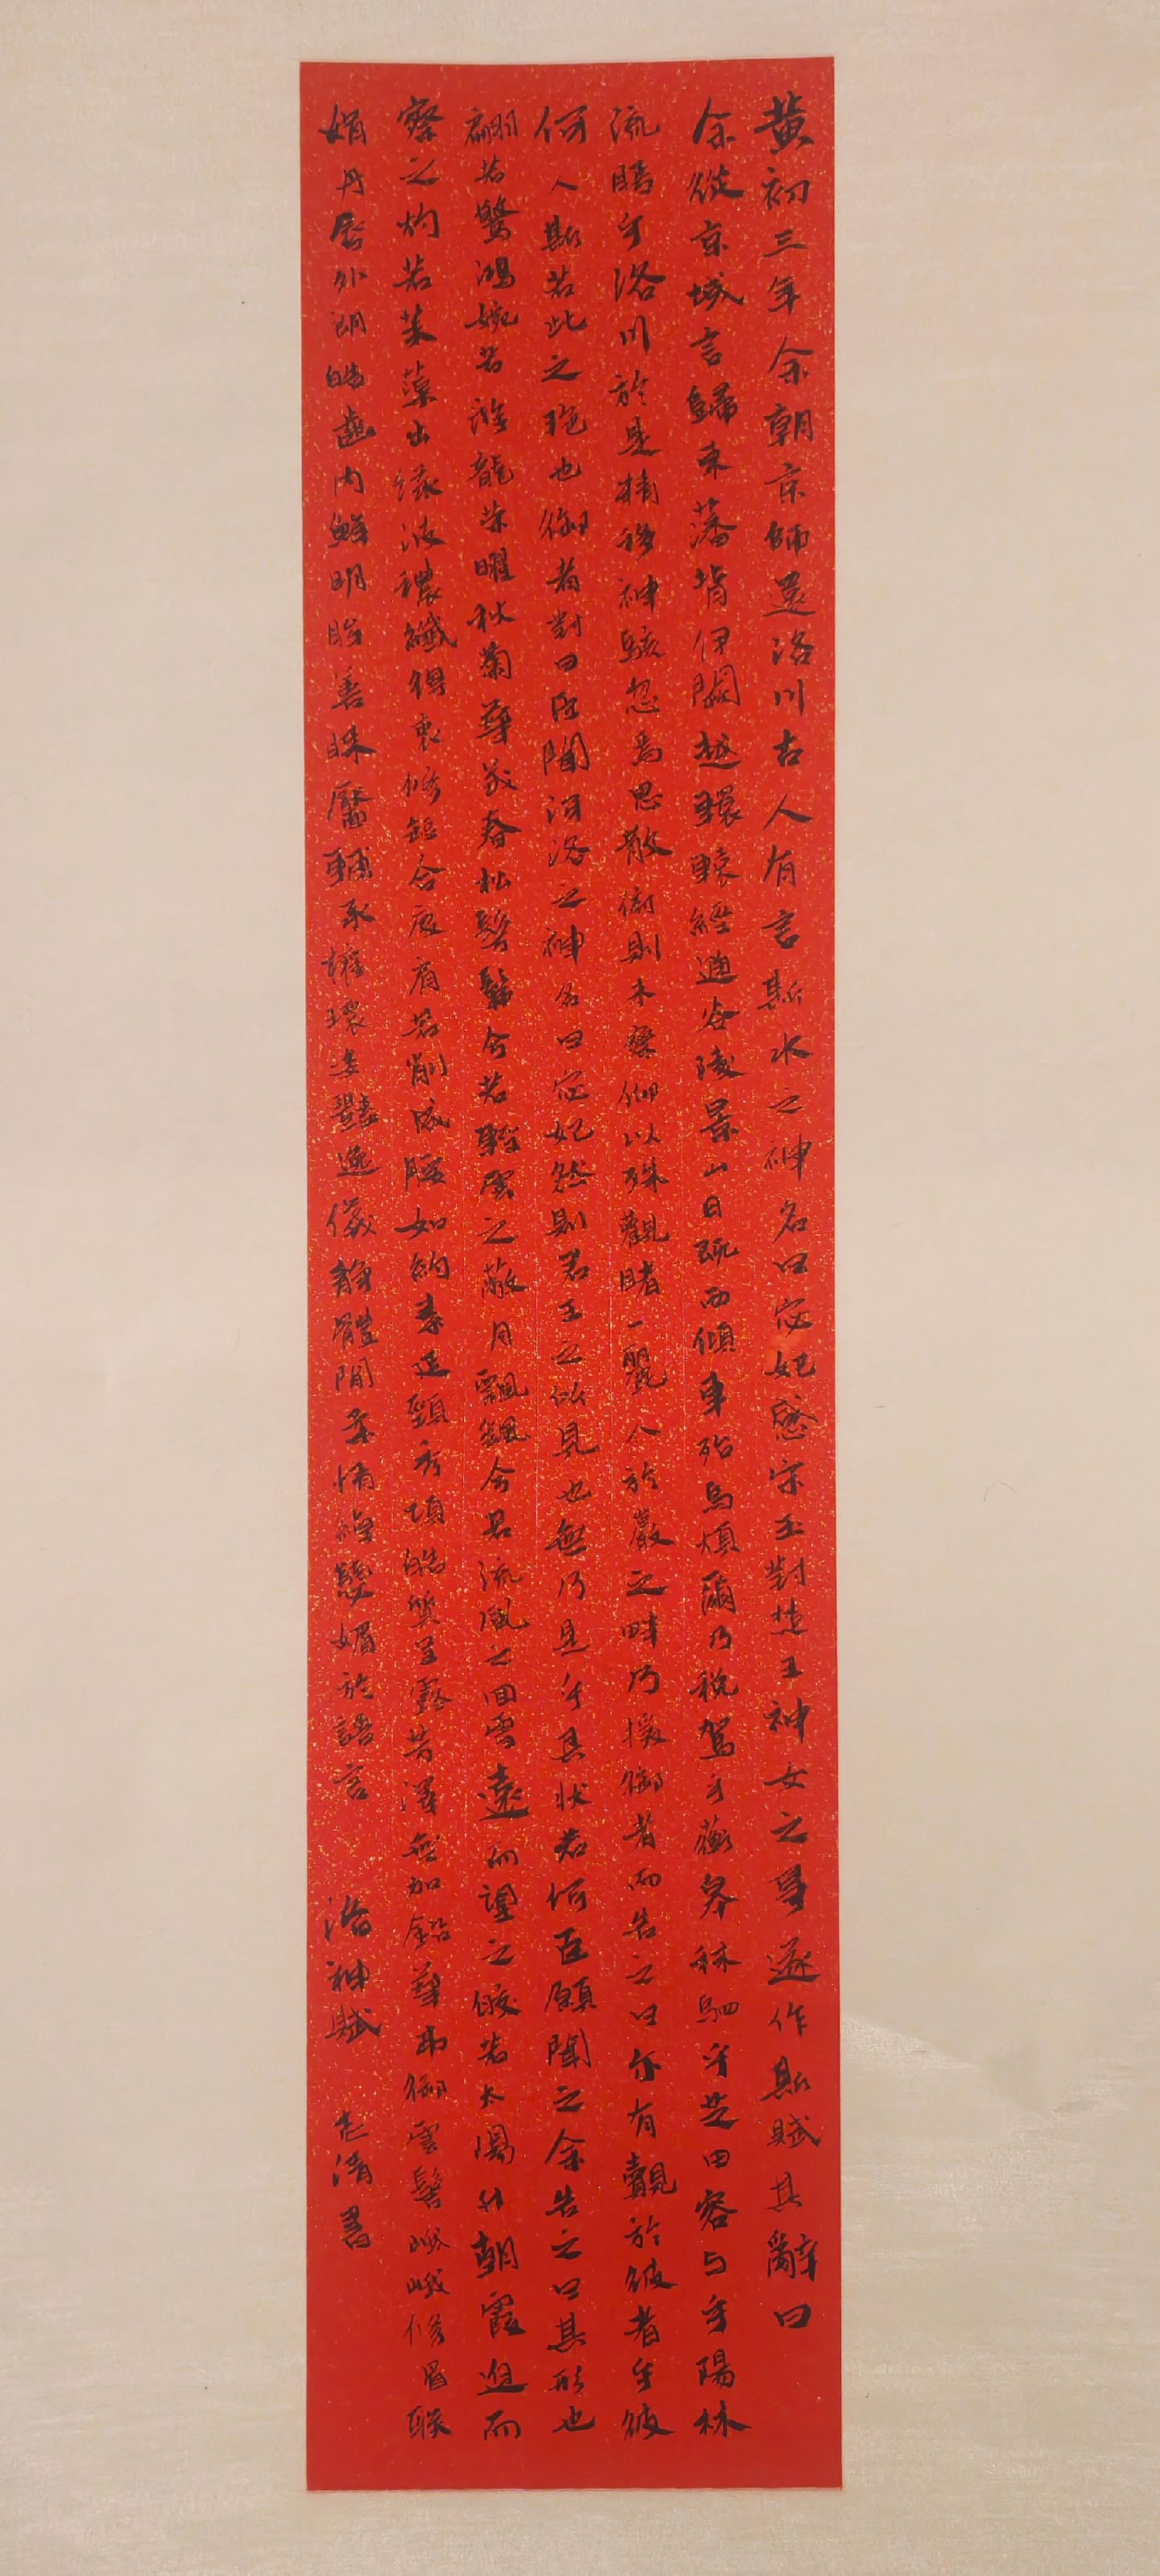 黄初三年余朝京師還洛川古人有言斯水之神名曰宓妃感宋玉對楚王神女之事遂作斯賦其辭曰
余從京域言歸東藩背伊闕越轘轅經通谷陵景山日既西傾車殆馬煩爾乃稅駕乎蘅皋秣駟乎芝田容与乎陽林
流眄乎洛川於是精移神駭忽焉思散俯則未察仰以殊觀睹一麗人於巖之畔乃援御者而告之曰尔有覿於彼者乎彼
何人斯若此之艳也御者對曰臣聞河洛之神名曰宓妃然則君王之所見也無乃是乎其状若何臣願聞之余告之曰其形也
翩若驚鴻婉若游龍荣曜秋菊華茂春松髣髴兮若輕雲之蔽月飄飖兮若流風之回雪遠而望之皎若太陽升朝霞迫而
察之灼若芙蕖出渌波穠纖得衷修短合度肩若削成腰如約素延頸秀項皓質呈露芳澤無加鉛華弗御雲髻峨峨修眉聯
娟丹唇外朗皓齒內鮮明眸善睞靨輔承權瓌姿豔逸儀靜體閑柔情綽態媚於語言 洛神賦 志清書